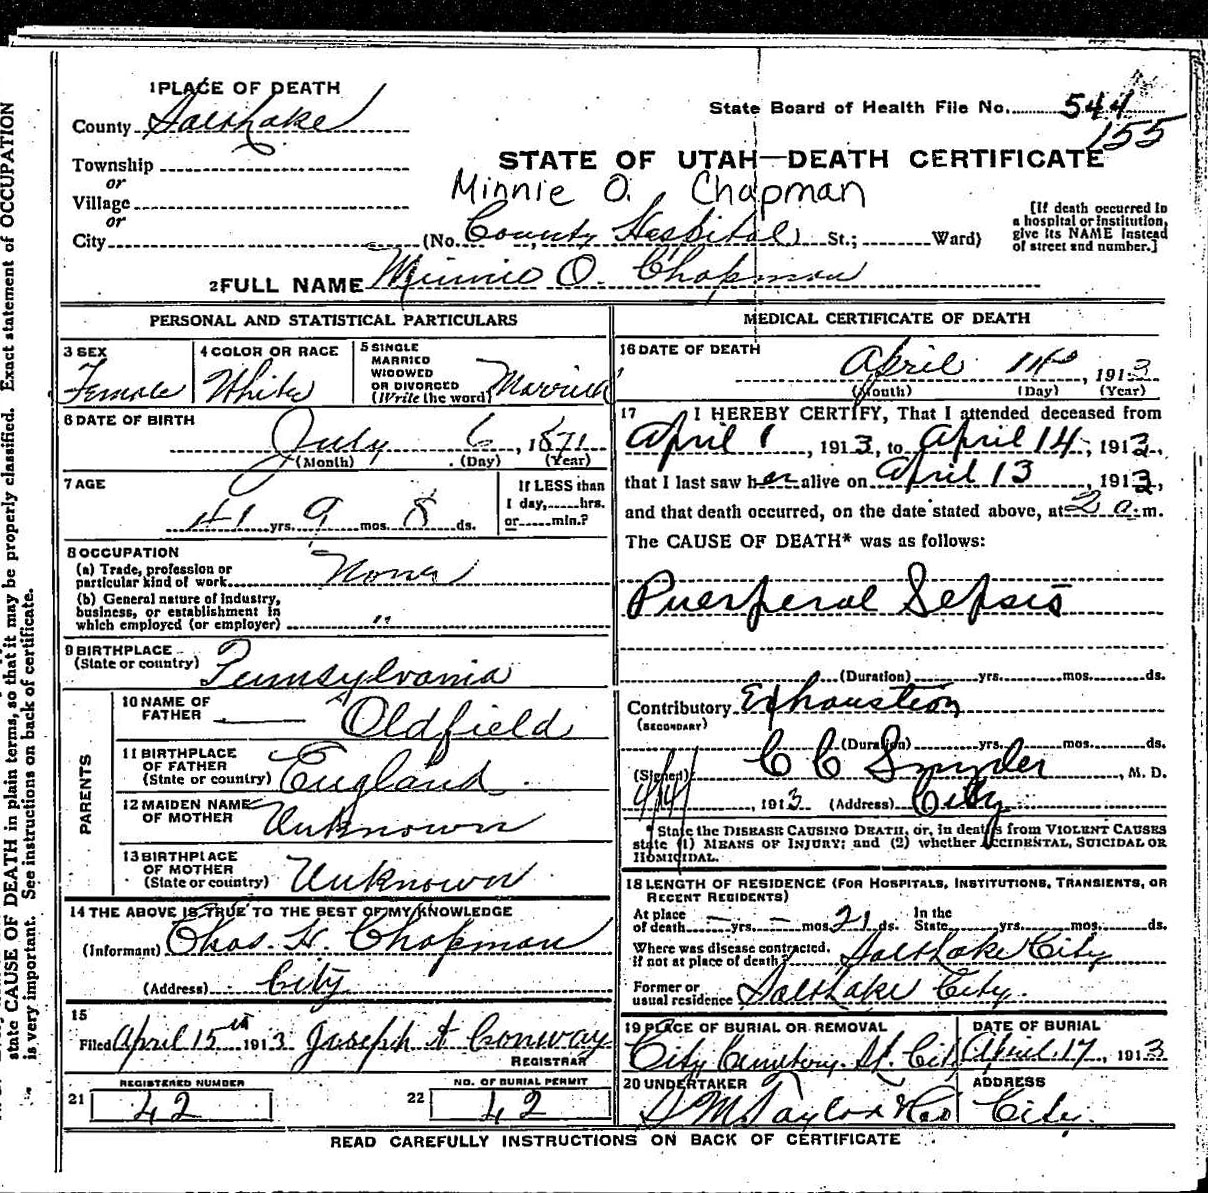 Exact statement of OCCUPATION
state CAUSE OF DEATH in plain terms, so that it may be properly classified.
is very important. See instructions on back of certificate.
1 PLACE OF DEATH
County Salt Lake
Township
or
Village
or
City
State Board of Health File No. 544
155
STATE OF UTAH—DEATH CERTIFICATE
Minnie O. Chapman
(No. County Hospital St.; Ward)
[If death occurred in a hospital or institution, give its NAME instead of street and number.]
2 FULL NAME Minnie O. Chapman
PERSONAL AND STATISTICAL PARTICULARS
3 SEX Female
4 COLOR OR RACE White
5 SINGLE MARRIED WIDOWED OR DIVORCED (Write the word) Married
6 DATE OF BIRTH July 6, 1871
(Month) (Day) (Year)
7 AGE 41 yrs. 9 mos. 8 ds.
If LESS than 1 day, hrs. or min.?
8 OCCUPATION
(a) Trade, profession or particular kind of work None
(b) General nature of industry, business, or establishment in which employed (or employer) "
9 BIRTHPLACE (State or country) Pennsylvania
PARENTS
10 NAME OF FATHER —— Oldfield
11 BIRTHPLACE OF FATHER (State or country) England
12 MAIDEN NAME OF MOTHER Unknown
13 BIRTHPLACE OF MOTHER (State or country) Unknown
14 THE ABOVE IS TRUE TO THE BEST OF MY KNOWLEDGE
(Informant) Chas. H. Chapman
(Address) City
15
Filed April 15th 1913 Joseph A Conway
REGISTRAR
21 REGISTERED NUMBER 42
22 NO. OF BURIAL PERMIT 42
MEDICAL CERTIFICATE OF DEATH
16 DATE OF DEATH April 14, 1913
(Month) (Day) (Year)
17 I HEREBY CERTIFY, That I attended deceased from
April 1, 1913, to April 14, 1913,
that I last saw her alive on April 13, 1913,
and that death occurred, on the date stated above, at 2 a. m.
The CAUSE OF DEATH* was as follows:
Puerperal Sepsis
(Duration) yrs. mos. ds.
Contributory Exhaustion
(SECONDARY)
(Duration) yrs. mos. ds.
(Signed) C C Snyder, M. D.
4/14/, 1913 (Address) City
* State the DISEASE CAUSING DEATH, or, in deaths from VIOLENT CAUSES
state (1) MEANS OF INJURY; and (2) whether ACCIDENTAL, SUICIDAL OR
HOMICIDAL.
18 LENGTH OF RESIDENCE (FOR HOSPITALS, INSTITUTIONS, TRANSIENTS, OR
RECENT RESIDENTS)
At place of death — yrs. — mos. 21 ds. In the State yrs. mos. ds.
Where was disease contracted, if not at place of death? Salt Lake City
Former or usual residence Salt Lake City.
19 PLACE OF BURIAL OR REMOVAL City Cemetery.
DATE OF BURIAL April 17, 1913
20 UNDERTAKER S M Taylor & Co
ADDRESS City.
READ CAREFULLY INSTRUCTIONS ON BACK OF CERTIFICATE